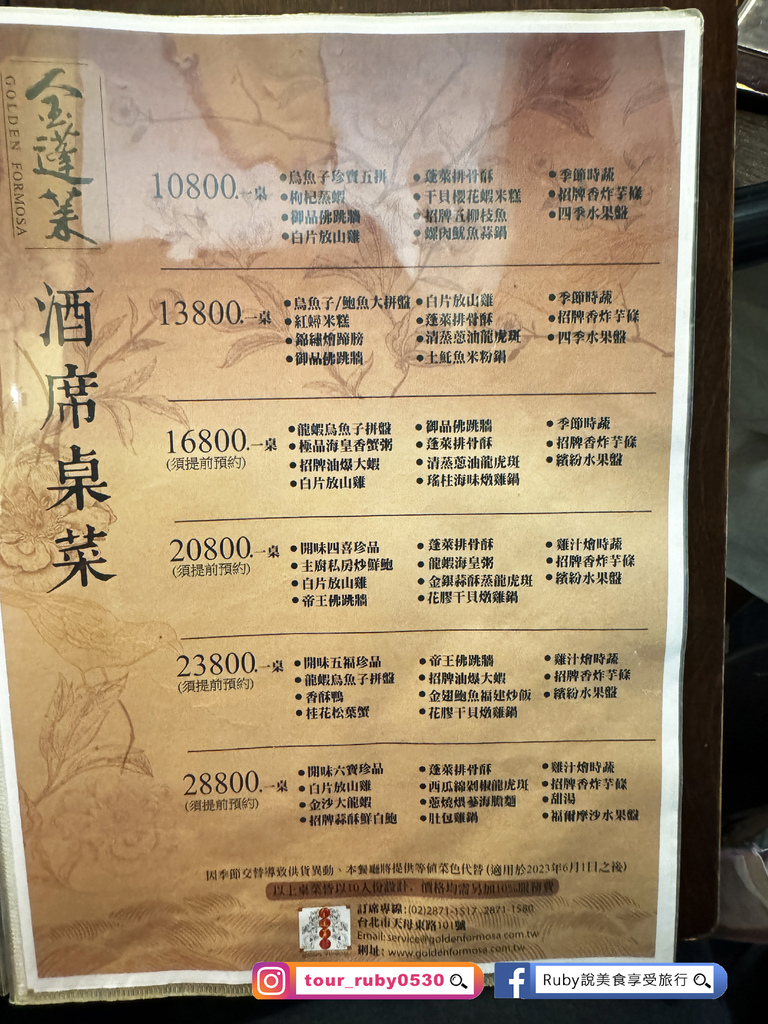 金蓬萊
GOLDEN FORMOSA
酒席桌菜
10800.一桌
•烏魚子珍寶五拼
•枸杞蒸蝦
•御品佛跳牆
•白片放山雞
•蓬萊排骨酥
•干貝櫻花蝦米糕
•招牌五柳枝魚
•螺肉魷魚蒜鍋
•季節時蔬
•招牌香炸芋條
•四季水果盤
13800.一桌
•烏魚子/鮑魚大拼盤
•紅蟳米糕
•錦繡燴蹄膀
•御品佛跳牆
•白片放山雞
•蓬萊排骨酥
•清蒸蔥油龍虎斑
•土魠魚米粉鍋
•季節時蔬
•招牌香炸芋條
•四季水果盤
16800.一桌
(須提前預約)
•龍蝦烏魚子拼盤
•極品海皇香蟹粥
•招牌油爆大蝦
•白片放山雞
•御品佛跳牆
•蓬萊排骨酥
•清蒸蔥油龍虎斑
•瑤柱海味燉雞鍋
•季節時蔬
•招牌香炸芋條
•繽紛水果盤
20800.一桌
(須提前預約)
•開味四喜珍品
•主廚私房炒鮮鮑
•白片放山雞
•帝王佛跳牆
•蓬萊排骨酥
•龍蝦海皇粥
•金銀蒜酥蒸龍虎斑
•花膠干貝燉雞鍋
•雞汁燴時蔬
•招牌香炸芋條
•繽紛水果盤
23800.一桌
(須提前預約)
•開味五福珍品
•龍蝦烏魚子拼盤
•香酥鴨
•桂花松葉蟹
•帝王佛跳牆
•招牌油爆大蝦
•金翅鮑魚福建炒飯
•花膠干貝燉雞鍋
•雞汁燴時蔬
•招牌香炸芋條
•繽紛水果盤
28800.一桌
(須提前預約)
•開味六寶珍品
•白片放山雞
•金沙大龍蝦
•招牌蒜酥鮮白鮑
•蓬萊排骨酥
•西瓜綿剁椒龍虎斑
•蔥燒煨蔘海膽麵
•肚包雞鍋
•雞汁燴時蔬
•招牌香炸芋條
•甜湯
•福爾摩沙水果盤
因季節交替導致供貨異動、本餐廳將提供等值菜色代替(適用於2023年6月1日之後)
以上桌菜皆以10人份設計，價格均需另加10%服務費
訂席專線:(02)2871-1517、2871-1580
台北市天母東路101號
Email:service@goldenformosa.com.tw
網址: www.goldenformosa.com.tw
tour_ruby0530
Ruby說美食享受旅行